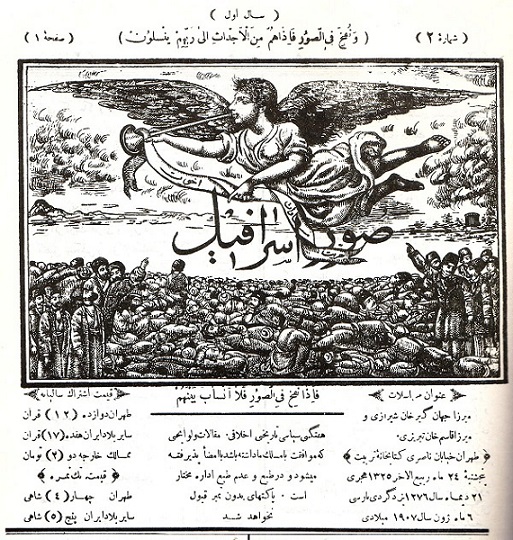 ( سال اول )
( شماره ۲ )
( وَنُفِخَ فِی الصُّورِ فَاِذَاهُمْ مِنَ الْاَجْدَاثِ اِلیٰ رَبِّهِمْ یَنْسِلُونَ )
( صفحهٔ ۱ )
صور اسرافیل
عنوان مراسلات
میرزا جهان گیر خان شیرازی و
میرزا قاسم خان تبریزی
طهران خیابان ناصری کتابخانهٔ تربیت
پنجشنبهٔ ۲۴ ماه ربیع الاخر ۱۳۲۵ هجری
۲۱ دیماه سال ۱۲۷۶ یزدگردی پارسی
۶ ماه ژون سال ۱۹۰۷ میلادی
فَاِذَا نُفِخَ فِی الصُّورِ فَلَا اَنْسَابَ بَیْنَهُمْ
هفتگی سیاسی تاریخی اخلاقی مقالات و لوایحی
که موافقت با مسلک ما داشته باشد با امضا پذیرفته
میشود و در طبع و عدم طبع اداره مختار
است . پاکتهای بدون تمبر قبول
نخواهد شد
قیمت اشتراک سالیانه
طهران دوازده (۱۲) قران
سایر بلاد ایران هفده (۱۷) قران
ممالک خارجه دو (۲) تومان
قیمت تک نمره
طهران چهار (۴) شاهی
سایر بلاد ایران پنج (۵) شاهی